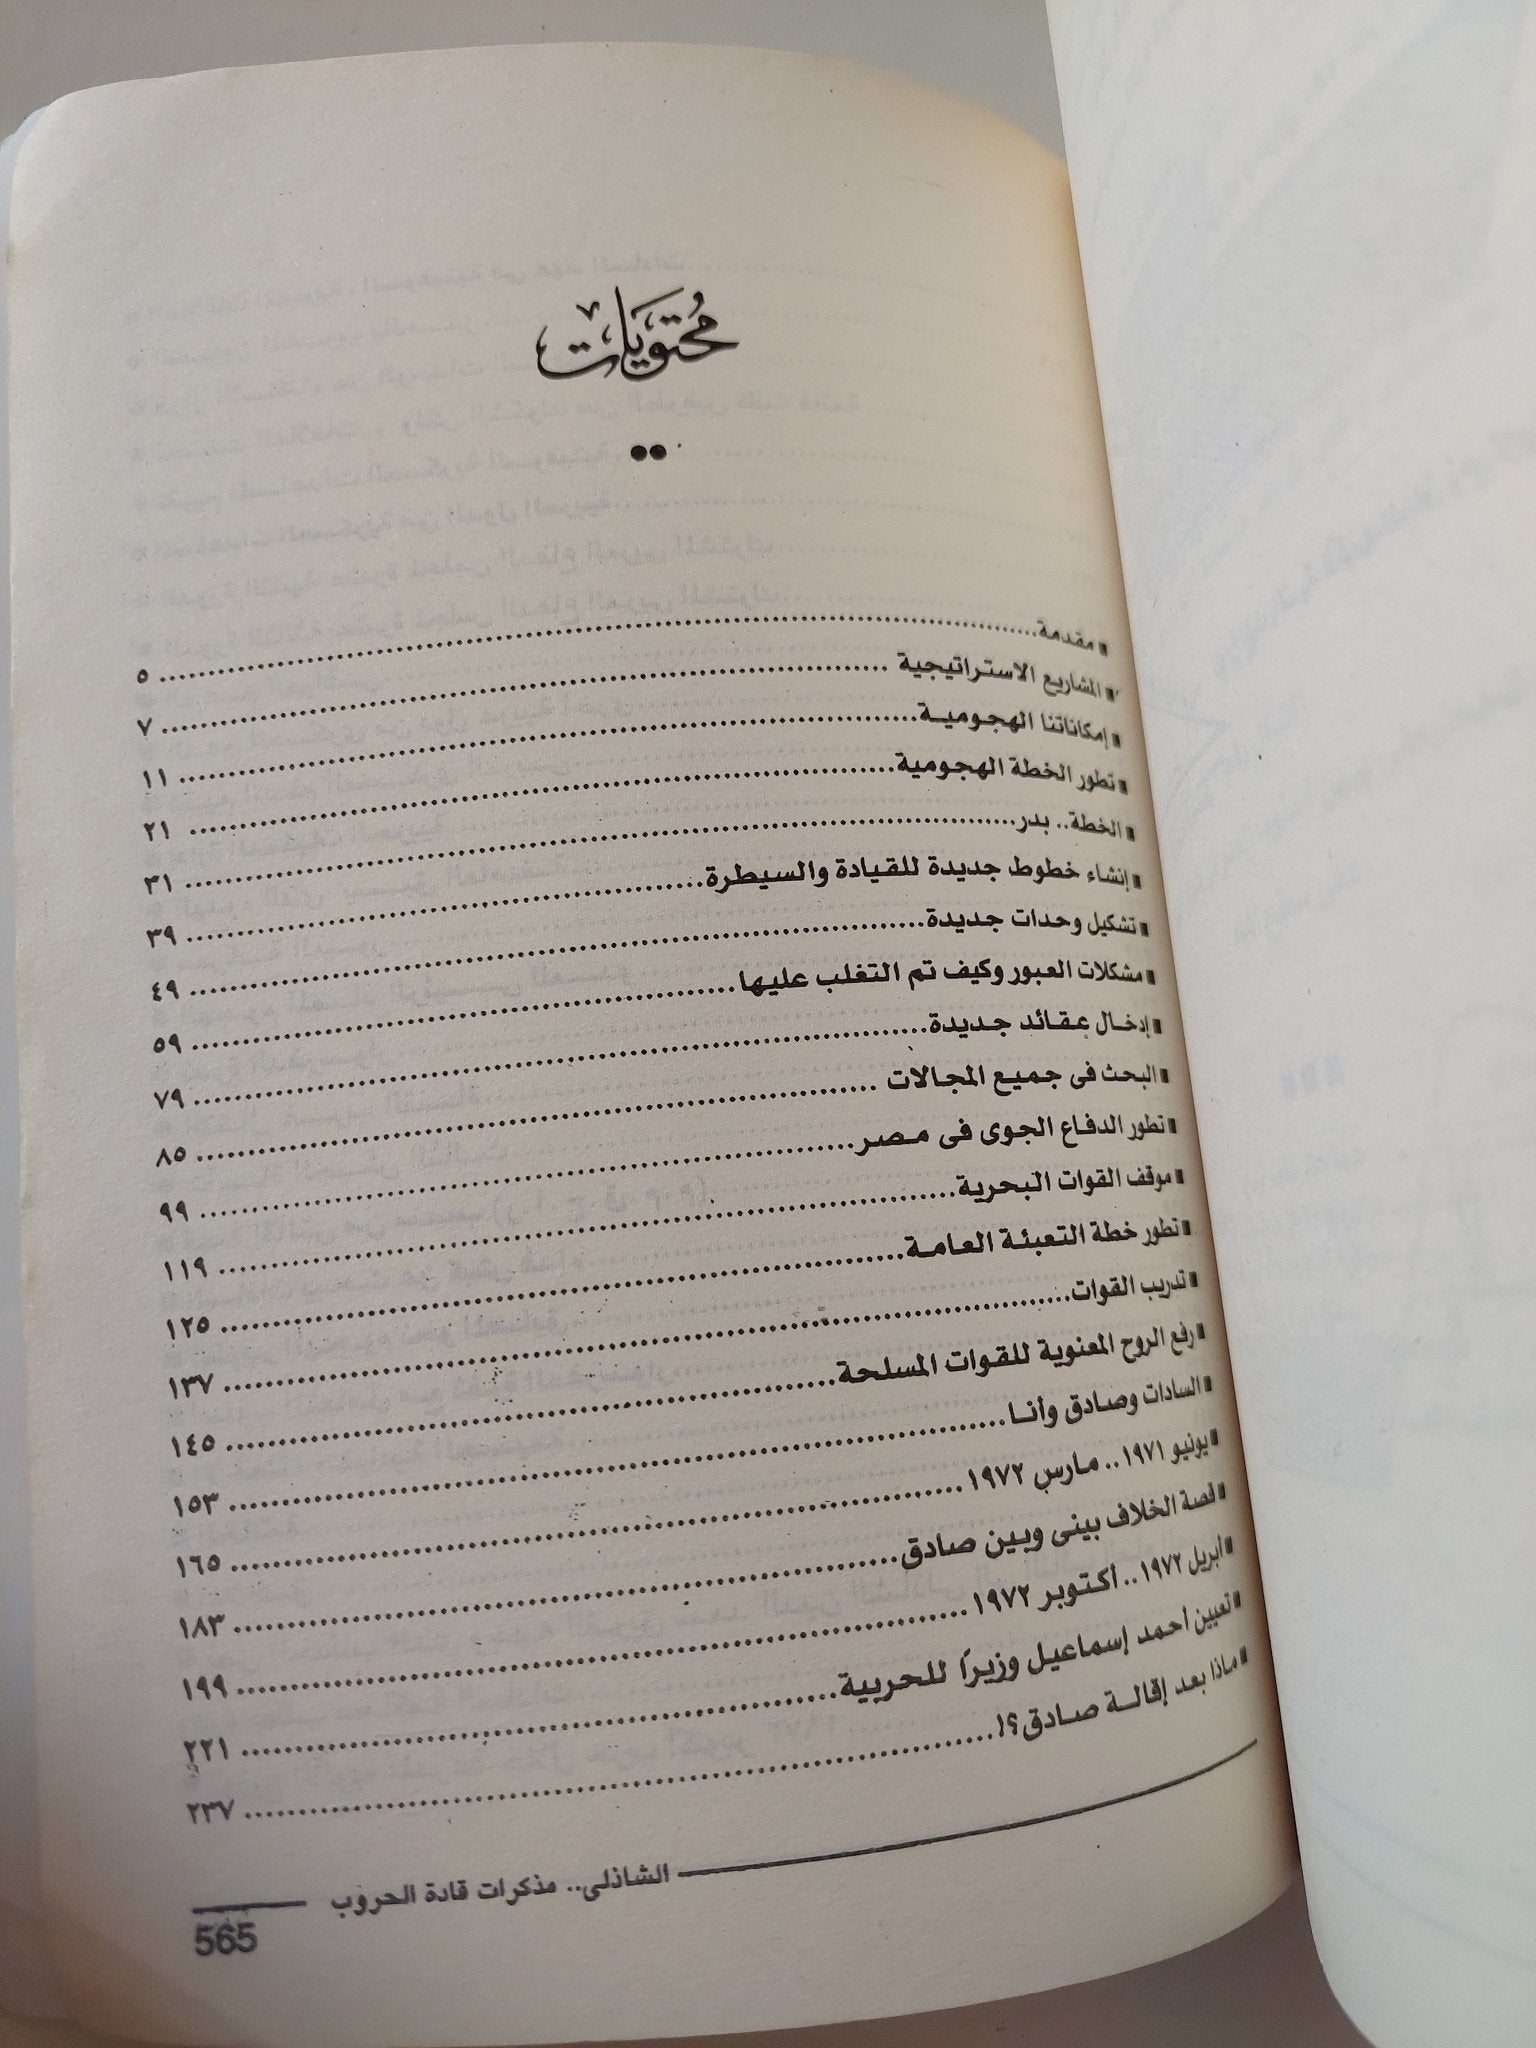 محتويات
مقدمة ٥
المشاريع الاستراتيجية ٧
إمكاناتنا الهجومية ١١
تطور الخطة الهجومية ٢١
الخطة.. بدر ٣١
إنشاء خطوط جديدة للقيادة والسيطرة ٣٩
تشكيل وحدات جديدة ٤٩
مشكلات العبور وكيف تم التغلب عليها ٥٩
إدخال عقائد جديدة ٧٩
البحث فى جميع المجالات ٨٥
تطور الدفاع الجوى فى مصر ٩٩
موقف القوات البحرية ١١٩
تطور خطة التعبئة العامة ١٢٥
تدريب القوات ١٣٧
رفع الروح المعنوية للقوات المسلحة ١٤٥
السادات وصادق وأنا ١٥٣
يونيو ١٩٧١.. مارس ١٩٧٢ ١٦٥
قصة الخلاف بينى وبين صادق ١٨٣
أبريل ١٩٧٢.. أكتوبر ١٩٧٢ ١٩٩
تعيين أحمد إسماعيل وزيرًا للحربية ٢٢١
ماذا بعد إقالة صادق؟! ٢٣٧
الشاذلى.. مذكرات قادة الحروب
565